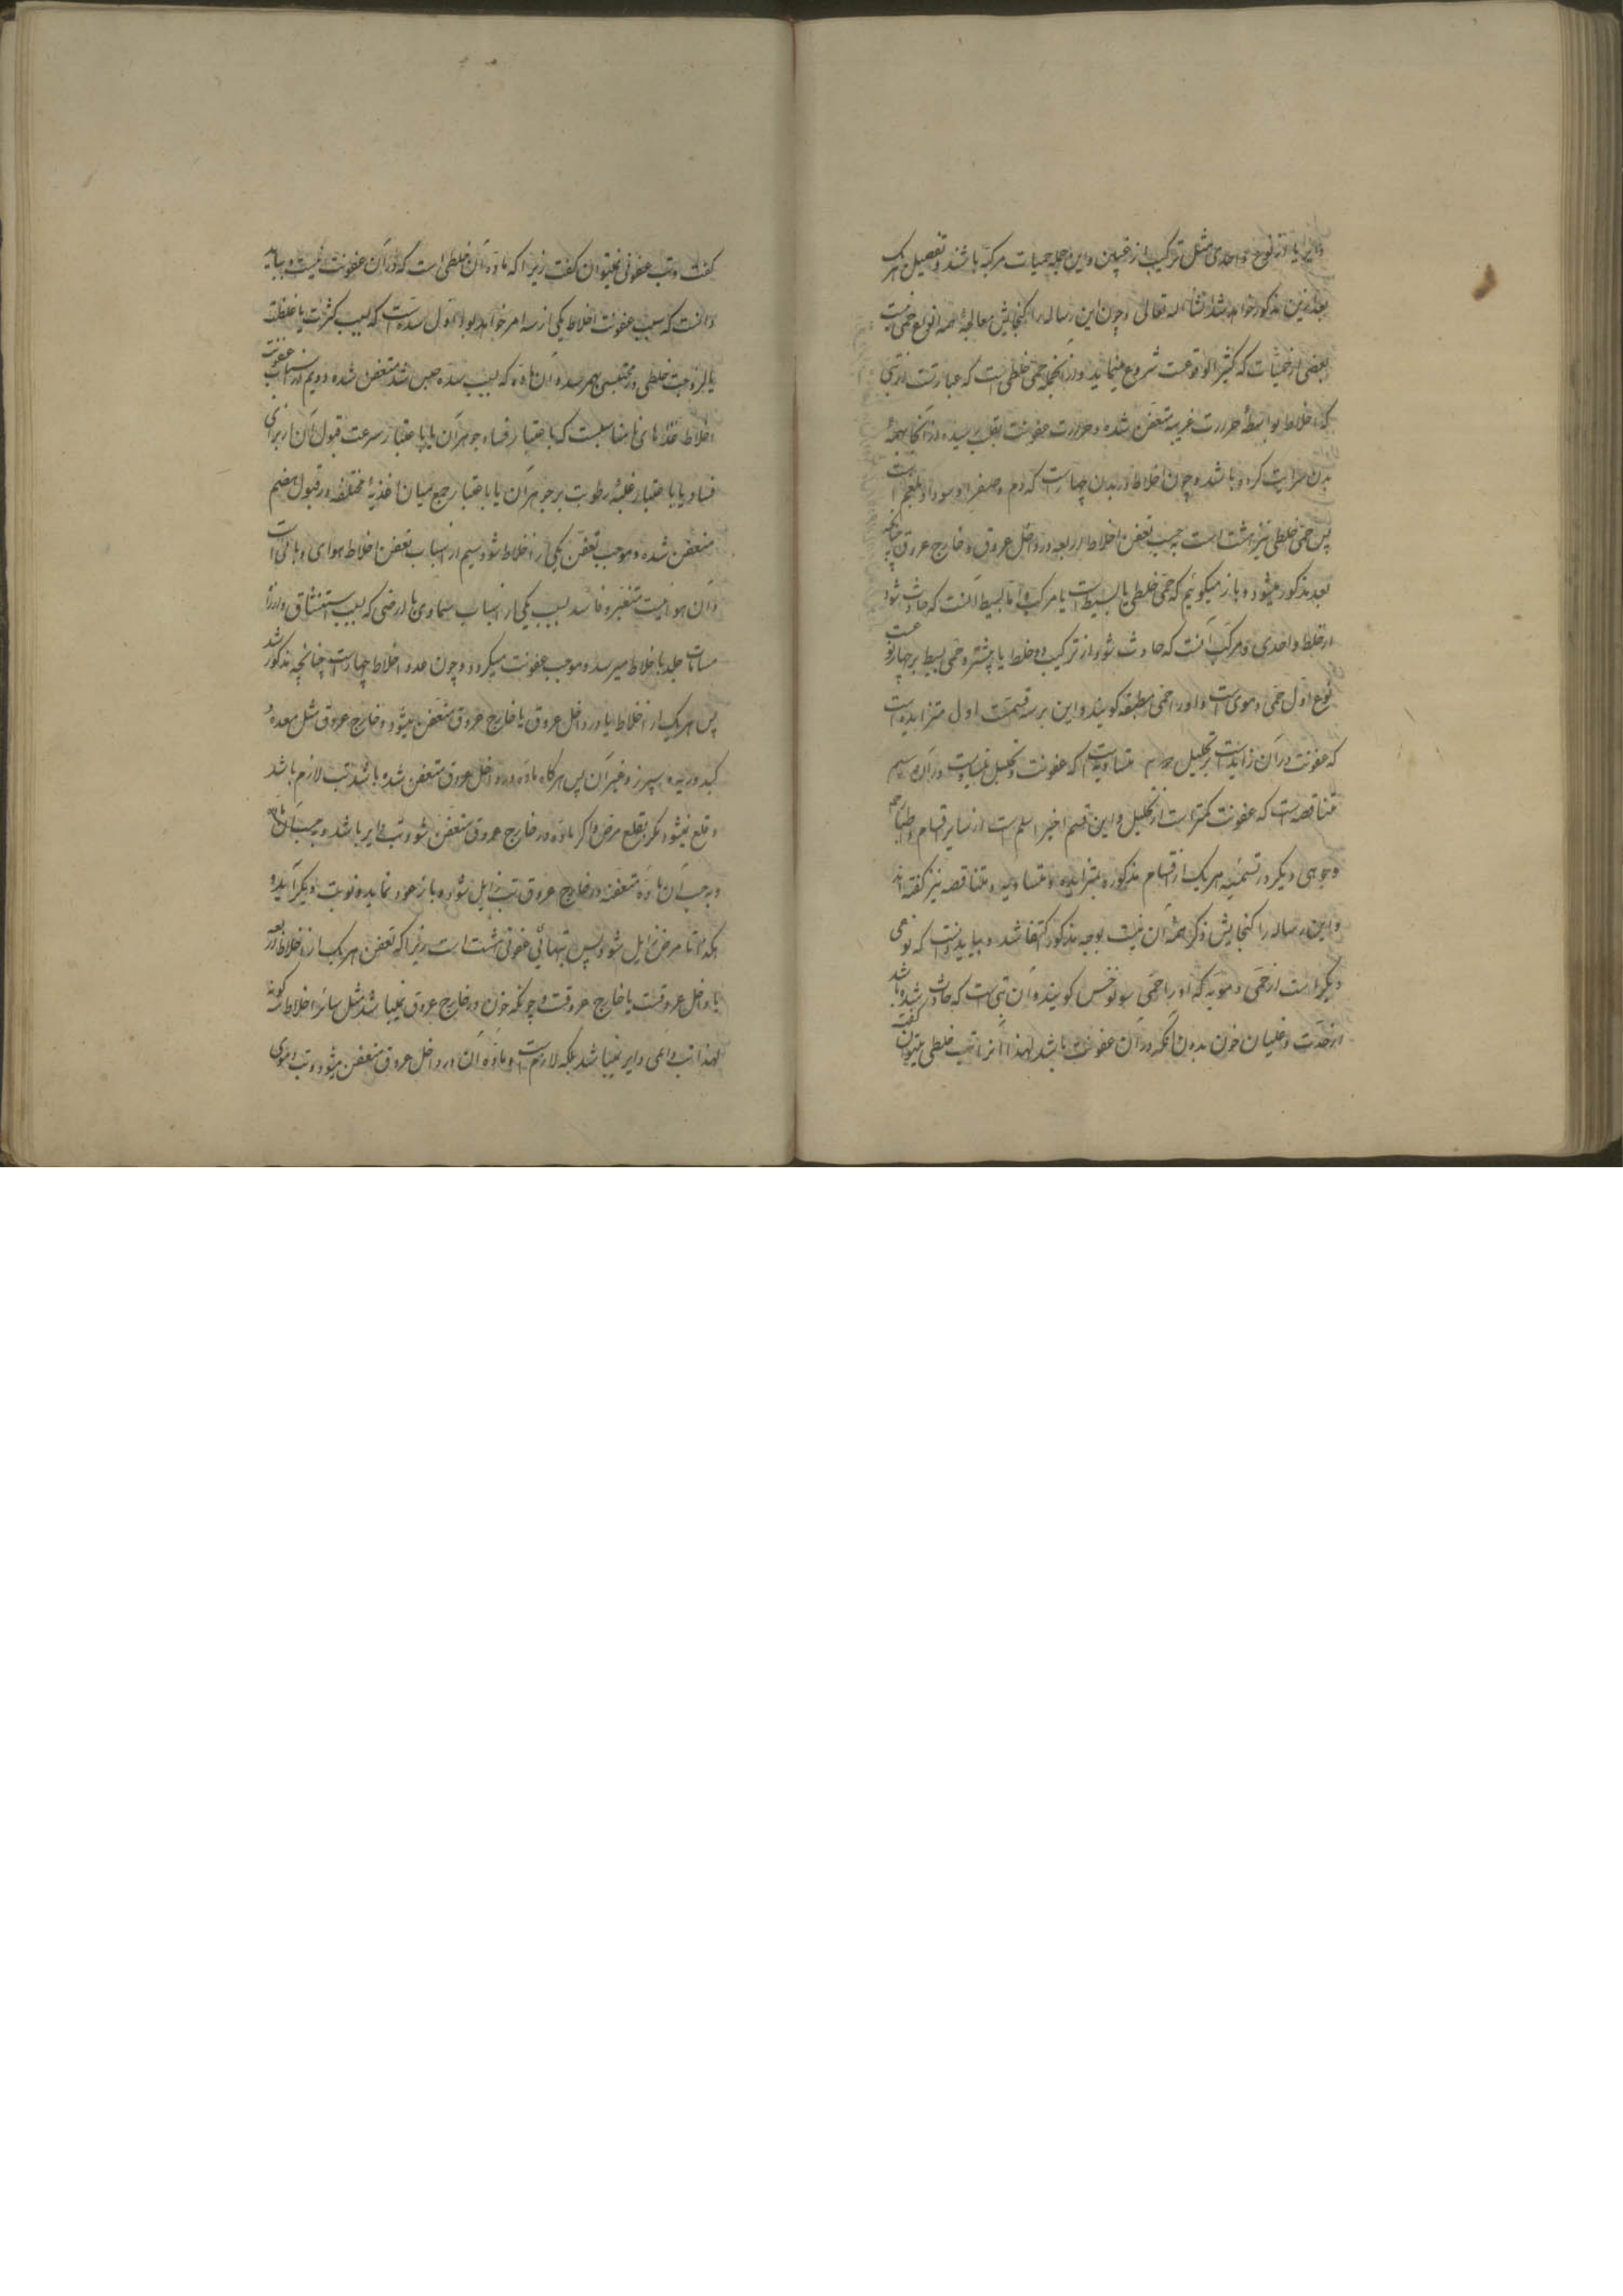 دایره یا از نوع واحدی مثل ترکیب از غبین و این جمله حمیات مرکبه باشند و تفصیل هریک
بعد ازین مذکور خواهد شد انشاء الله تعالی و چون این رساله را گنجایش معالجهٔ همه انواع حمی نیست
بعضی از حمیات که کثیر الوقوعست شروع مینماید و از آنجمله حمی خلطی است که عبارتست از تبی
که اخلاط بواسطهٔ حرارت غریبه متعفن شده و حرارت عفونت بقلب رسیده و از آنجا بهمهٔ
بدن سرایت کرده باشد و چون اخلاط در بدن چهار است که دم و صفرا و سودا و بلغم است
پس حمی خلطی نیز هشت است بحسب تعفن اخلاط اربعه در داخل عروق و خارج عروق چنانچه
بعد مذکور میشود و باز میگوئیم که حمی خلطی یا بسیط است یا مرکب و اما بسیط آنست که حادث شود
از خلط واحدی و مرکب آنست که حادث شود از ترکیب دو خلط یا بیشتر و حمی بسیط بر چهار نوعست
نوع اول حمی دمویست و او را حمی مطبقه گویند و این بر سه قسمت اول متزایده است
که عفونت در آن زاید است بر تحلیل دوم متساویه است که عفونت و تحلیل متساویست در آن سیم
متناقصه است که عفونت کمتر است از تحلیل و این قسم اخیر اسلم است از سایر اقسام و اطبا را
وجوهی دیگر در تسمیه هر یک از اقسام مذکوره بمتزایده و متساویه و متناقصه نیز گفته اند
و این رساله را گنجایش ذکر همهٔ آن نیست بوجه مذکور اکتفا شد و بباید دانست که نوعی
دیگر است از حمی دمویه که او را حمی سونوخس گویند و آن تبی است که حادث شده باشد
از حدت و غلیان خون بدون آنکه در آن عفونت باشد لهذا آنرا تب خلطی میتوان گفت
گفت و تب عفونی نمیتوان گفت زیرا که ماده آن خلطی است که در آن عفونت نیست و بباید
دانست که سبب عفونت اخلاط یکی از سه امر خواهد بود اول سده است که بسبب کثرت یا غلظت
یا لزوجت خلطی در محتبسی بهم رسد و آن ماده که بسبب سده حبس شد متعفن شده دویم از اسباب عفونت
اخلاط غذاهای نامناسبست که باعتبار فساد جوهر آن یا باعتبار سرعت قبول آن از برای
فساد یا باعتبار غلبهٔ رطوبت بر جوهر آن یا باعتبار جمع میان اغذیهٔ مختلفه در قبول هضم
متعفن شده و موجب تعفن یکی از اخلاط شود سیم از اسباب تعفن اخلاط هوای وبائی است
و آن هوائیست متغیر و فاسد بسبب یکی از اسباب سماوی یا ارضی که بسبب استنشاق و از راه
مسامات جلد باخلاط میرسد و موجب عفونت میگردد و چون عدد اخلاط چهار است چنانچه مذکور شد
پس هر یک از اخلاط یا در داخل عروق یا خارج عروق متعفن میشود و خارج عروق مثل معده و
کبد و ریه و سپرز و غیر آن پس هرگاه ماده در داخل عروق متعفن شده باشد تب لازم باشد
و قلع نمیشود مگر بقلع مرض و اگر ماده در خارج عروق متعفن شود تب دایر باشد و بحسب آن ماده
و بحسب آن ماده متعفنه در خارج عروق تب زایل شود و باز عود نماید و نوبت دیگر آید و
هکذا تا مرض زایل شود پس تبهائی عفونی هشت است زیرا که تعفن هر یک از اخلاط اربعه
یا داخل عروقست یا خارج عروقست و چونکه خون در خارج عروق نمیباشد مثل سائر اخلاط گونه
لهذا تب دائمی دایر نمیباشد بلکه لازم است و ماده آن در داخل عروق متعفن میشود و تب دموی